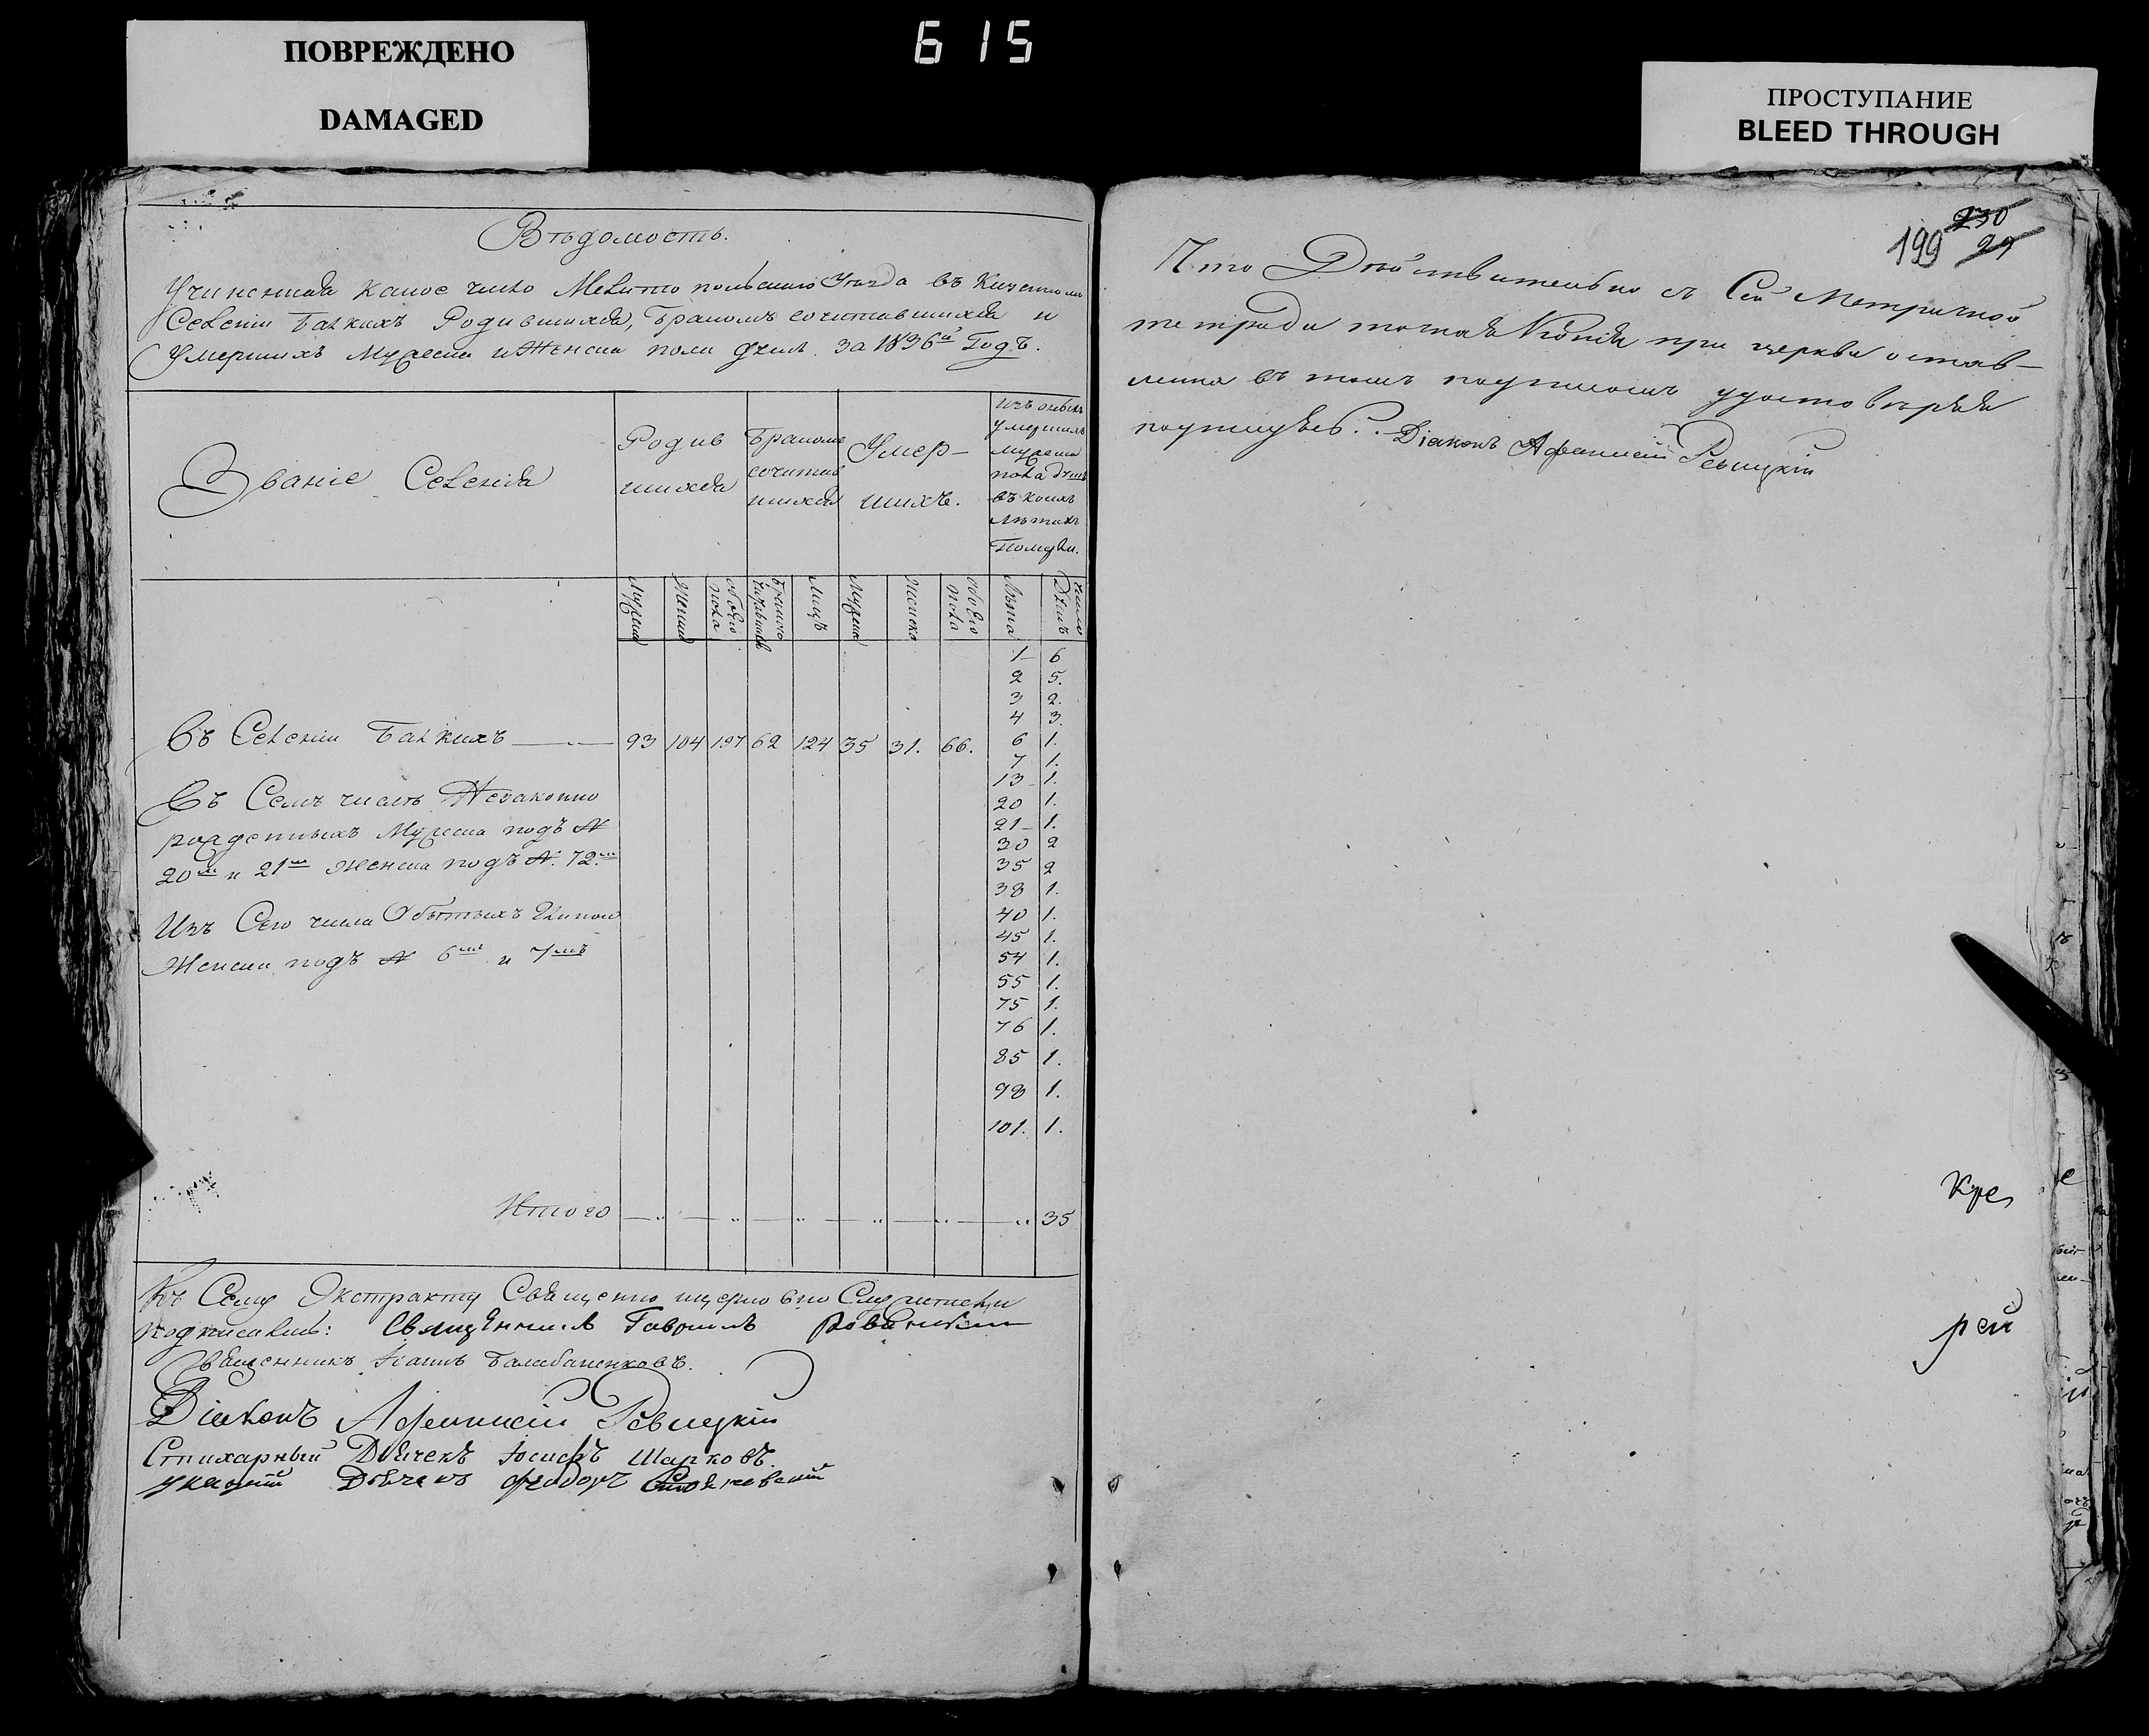 ПОВРЕЖДЕНО
DAMAGED
615
ПРОСТУПАНИЕ
BLEED THROUGH
Вѣдомость.
Учиненная какое число Мелитопольскаго Уезда въ Казенномъ
Селении Балкихъ Родившихся, бракомъ сочитавшихся и
Умершихъ Мужеска и Женска пола душъ. за 1836й Годъ.
Званіе Селенія
Родив
шихся
Бракомъ
сочитав
шихся
Умер-
шихъ.
изъ оныхъ
умершихъ
мужеска
пола душъ
въ коихъ
лѣтахъ
Померли.
Мужеска
Женска
обоего
пола
Браково
лицъ
Мужеска
Женска
обоего
пола
Лѣта
число
Душъ
1- 6
2 5.
3 2.
4 3.
Въ Селеніи Балкихъ 93 104 197 62 124 35 31. 66. 6 1.
7 1.
13 1.
Въ Семъ числѣ Незаконно
20 1.
рожденныхъ Мужеска подъ №
21- 1.
30 2
20мъ и 21мъ Женска подъ №. 72.мъ
35 2
38 1.
Изъ Сего числа
40 1.
45 1.
Женска подъ № 6мъ и 7мъ
54 1.
55 1.
75 1.
76 1.
85 1.
98 1.
101. 1.
Итого 35
Къ Сему Экстракту Священно и церковно Служители
подписались: Священникъ Гавриилъ
Священникъ Іоаннъ Балабаненковъ.
Діаконъ Афанасій Ревуцкій
Стихарный Дьячекъ Іосифъ Шарковъ.
указной Дьячекъ Феодоръ Стояновскій
230
199 29
Что Действительно съ Сей Метричной
тетради точная Копія при церкви остав-
лена въ томъ подписомъ удостовѣряя
подпишуюсь. Діаконъ Афанасій Ревуцкій
Кре
рей